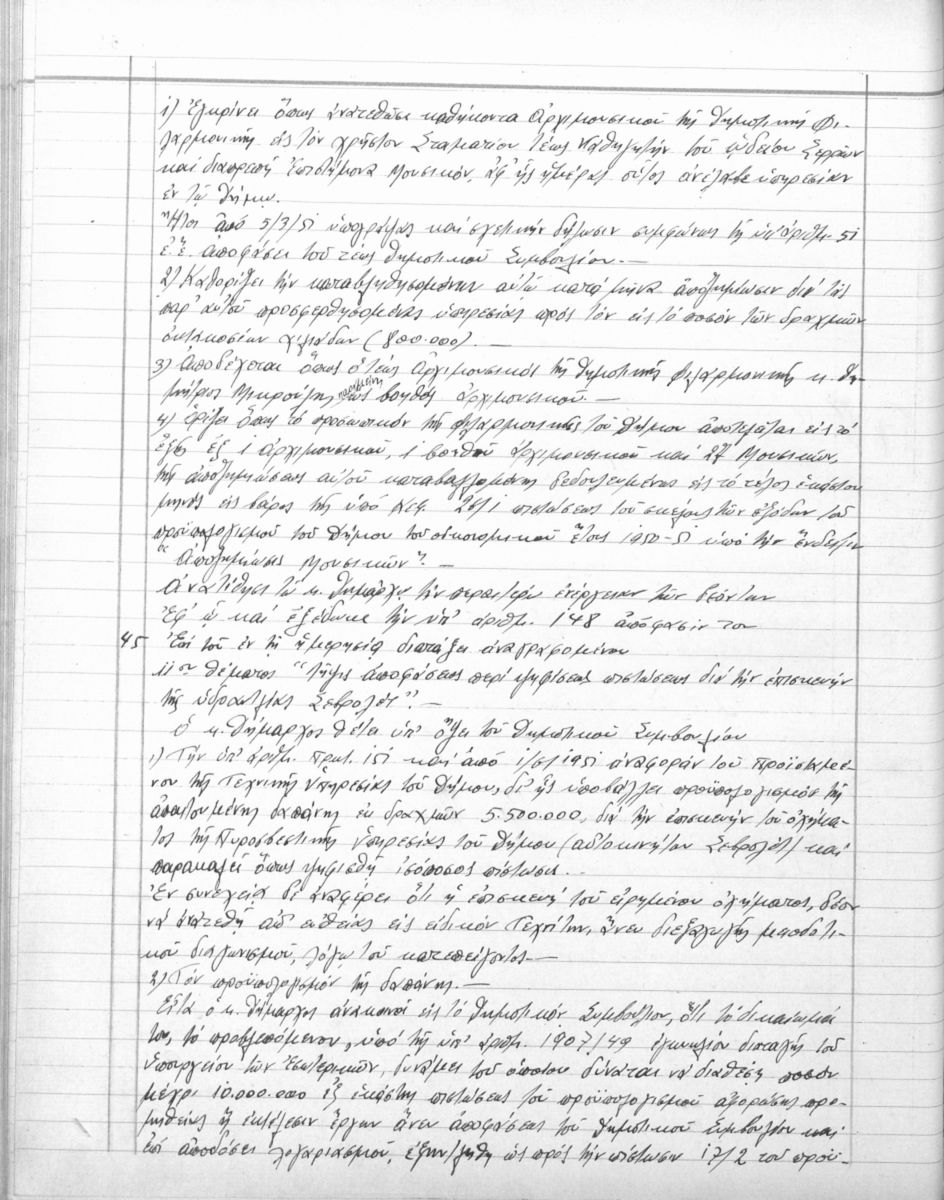 1) Ἐγκρίνει ὅπως ἀνατεθῶσι καθήκοντα Ἀρχιμουσικοῦ τῆς Δημοτικῆς Φι-
λαρμονικῆς εἰς τὸν Χρῆστον Σταματίου τέως Καθηγητὴν τοῦ Ὠδείου Σερρῶν
καὶ διαπρεπῆ ἐπιστήμονα μουσικόν, ἀφ' ἧς ἡμέρας οὗτος ἀνέλαβε ὑπηρεσίαν
ἐν τῷ Δήμῳ.
Ἤτοι ἀπὸ 5/3/51 ὑπογράψας καὶ σχετικὴν δήλωσιν συμφώνως τῇ ὑπ' ἀριθμ. 51
ἐ.ἔ. ἀποφάσει τοῦ τέως Δημοτικοῦ Συμβουλίου.—
2) Καθορίζει τὴν καταβληθησομένην αὐτῷ κατὰ μῆνα ἀποζημίωσιν διὰ τὰς
παρ' αὐτοῦ προσφερθησομένας ὑπηρεσίας πρὸς τὸν εἰς τὸ ποσὸν τῶν δραχμῶν
ὀκτακοσίων χιλιάδων (800.000).—
3) Ἀποδέχεται ὅπως ὁ τέως Ἀρχιμουσικὸς τῆς Δημοτικῆς Φιλαρμονικῆς κ. Δη-
μήτριος παραμείνῃ ὡς βοηθὸς ἀρχιμουσικοῦ.—
4) Ὁρίζει ὅπως τὸ προσωπικὸν τῆς Φιλαρμονικῆς τοῦ Δήμου ἀποτελεῖται εἰς τὸ
ἑξῆς ἐξ 1 ἀρχιμουσικοῦ, 1 βοηθοῦ ἀρχιμουσικοῦ καὶ 27 μουσικῶν,
τῆς ἀποζημιώσεως αὐτοῦ καταβαλλομένης δεδουλευμένως εἰς τὸ τέλος ἑκάστου
μηνὸς εἰς βάρος τῆς ὑπὸ Κεφ. πιστώσεως τοῦ σκέλους τῶν ἐξόδων τοῦ
προϋπολογισμοῦ τοῦ Δήμου τοῦ οἰκονομικοῦ ἔτους 1950-51 ὑπὸ τὴν ἔνδειξιν
"Ἀποζημιώσεις Μουσικῶν".—
Ἀνατίθησι τῷ κ. Δημάρχῳ τὴν περαιτέρω ἐνέργειαν τῶν δεόντων
Ἐφ' ᾧ καὶ ἐξέδωκε τὴν ὑπ' ἀριθμ. 148 ἀπόφασίν του
45 Ἐπὶ τοῦ ἐν τῇ ἡμερησίᾳ διατάξει ἀναγραφομένου
11ου θέματος "Λῆψις ἀποφάσεως περὶ ψηφίσεως πιστώσεως διὰ τὴν ἐπισκευὴν
τῆς ὑδραντλίας Σεβρολέτ".—
Ὁ κ. Δήμαρχος θέτει ὑπ' ὄψει τοῦ Δημοτικοῦ Συμβουλίου
1) Τὴν ὑπ' ἀριθμ. πρωτ. 151 καὶ ἀπὸ 1951 ἀναφορὰν τοῦ προϊσταμέ-
νου τῆς Τεχνικῆς Ὑπηρεσίας τοῦ Δήμου, δι' ἧς ὑποβάλλει προϋπολογισμὸν τῆς
ἀπαιτουμένης δαπάνης ἐκ δραχμῶν 5.500.000, διὰ τὴν ἐπισκευὴν τοῦ ὀχήμα-
τος τῆς Πυροσβεστικῆς Ὑπηρεσίας τοῦ Δήμου (αὐτοκινήτου Σεβρολέτ) καὶ
παρακαλεῖ ὅπως ψηφισθῇ ἰσόποσος πίστωσις..
Ἐν συνεχείᾳ δὲ ἀναφέρει ὅτι ἡ ἐπισκευὴ τοῦ εἰρημένου ὀχήματος, δέον
νὰ ἀνατεθῇ ἀπ' εὐθείας εἰς εἰδικὸν Τεχνίτην, ἄνευ διεξαγωγῆς μειοδοτι-
κοῦ διαγωνισμοῦ, λόγῳ τοῦ κατεπείγοντος.—
2) Τὸν προϋπολογισμὸν τῆς δαπάνης.—
Εἶτα ὁ κ. Δήμαρχος ἀνακοινοῖ εἰς τὸ Δημοτικὸν Συμβούλιον, ὅτι τὸ δικαίωμά
του, τὸ προβλεπόμενον ὑπὸ τῆς ὑπ' ἀριθμ. 1907/49 ἐγκυκλίου διαταγῆς τοῦ
Ὑπουργείου τῶν Ἐσωτερικῶν, δυνάμει τοῦ ὁποίου δύναται νὰ διαθέσῃ ποσὸν
μέχρι 10.000.000 ἐξ ἑκάστης πιστώσεως τοῦ προϋπολογισμοῦ προ-
μηθείας ἢ ἐκτέλεσιν ἔργων ἄνευ ἀποφάσεως τοῦ Δημοτικοῦ Συμβουλίου καὶ
ἐπὶ ἀποδόσει λογαριασμοῦ, ἐξηντλήθη ὡς πρὸς τὴν πίστωσιν 17/2 τοῦ προϋ-